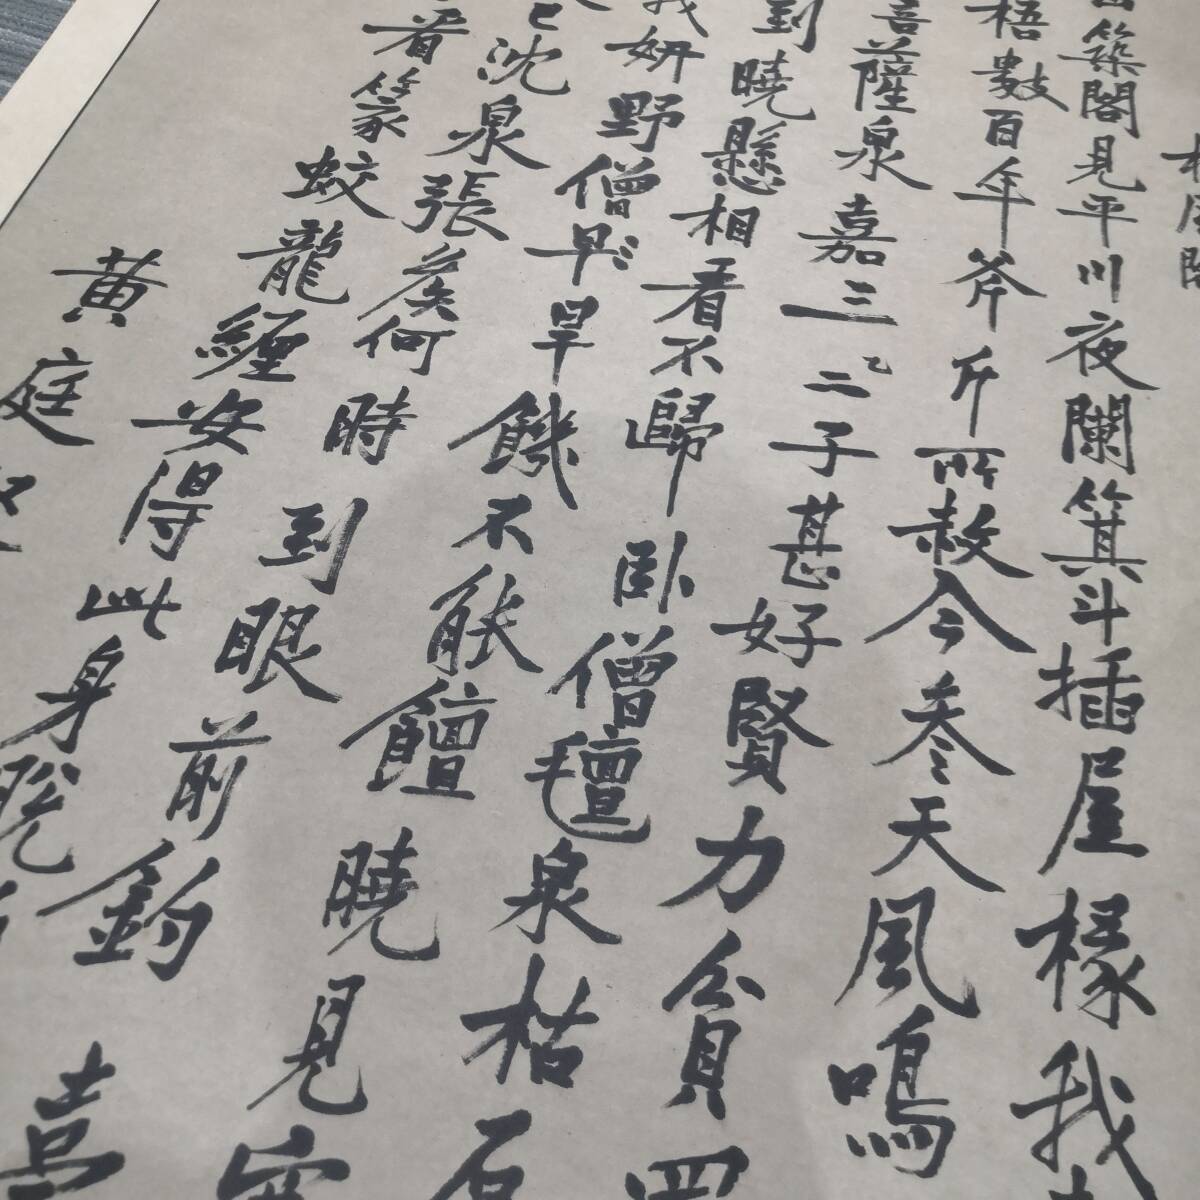 松風閣
山築閣見平川夜闌箕斗插屋椽我
梧數百年斧斤所赦今參天風鳴
菩薩泉嘉三二乙子甚好賢力貧買
到曉懸相看不歸臥僧氈泉枯石
我妍野僧早旱饑不能饘曉見寒
已沈泉張侯何時到眼前釣臺
看篆蛟龍纏安得此身脫
黃庭堅